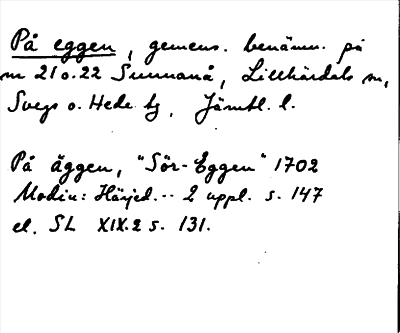 På eggen, gemens. benämn. på
nr 21 o. 22 Sunnanå, Lillhärdals sn,
Svegs o. Hede tg, Jämtl. l.
På äggen, "Sör-Eggen" 1702
Modin: Härjed. -- 2 uppl. s. 147
el. SL XIX.2 s. 131.